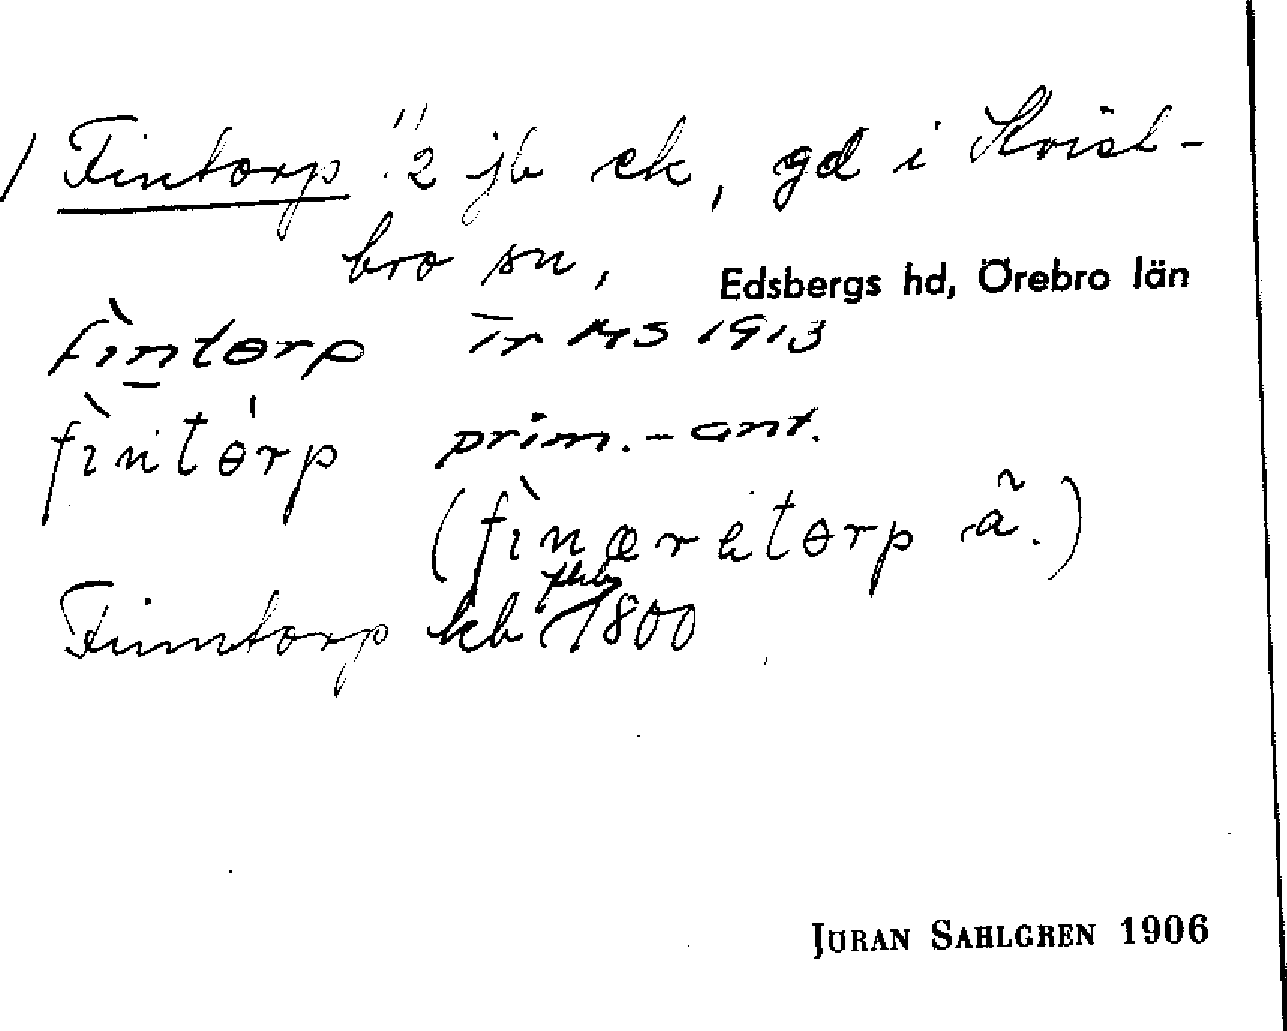 / Fintorp "2 jb ek, gd i Kvist-
bro sn, Edsbergs hd, Örebro län
fìntɵrp Tr HS 1913
fìntɵ́rp prim.-ant.
(fìnærɵtɵrp ä.)
Finntorp kb 1800
JÖRAN SAHLGREN 1906